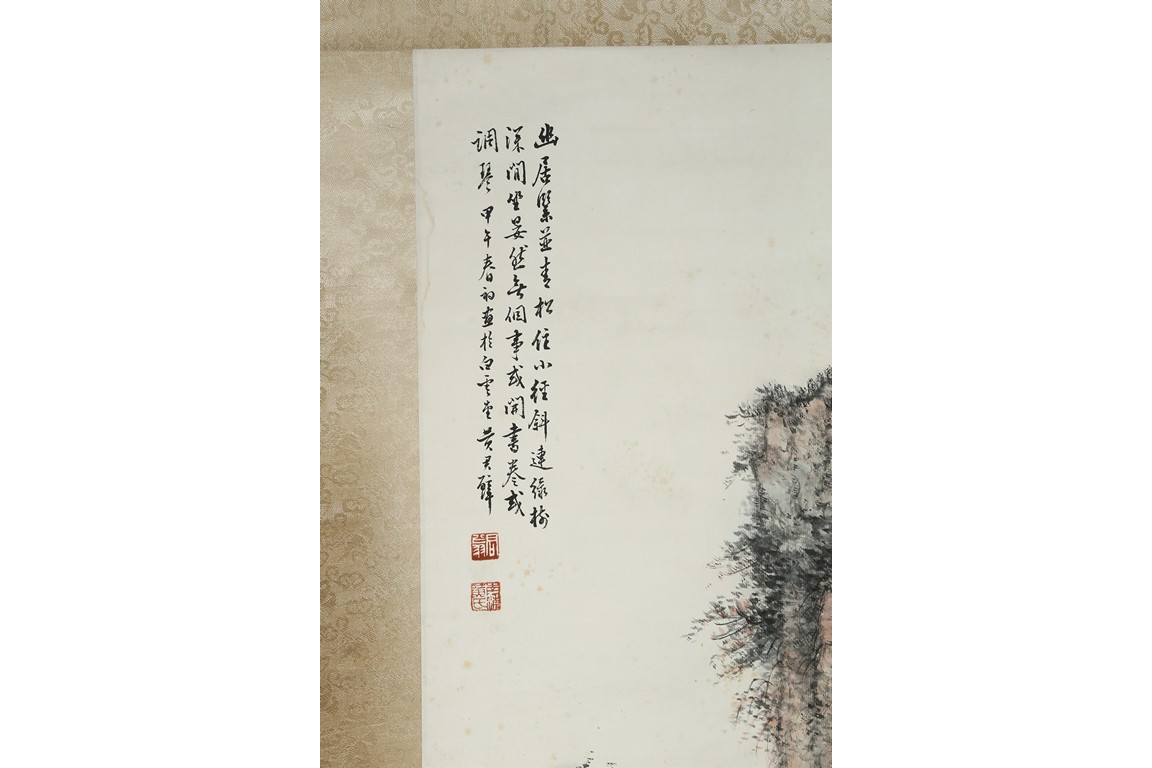 幽居緊並青松住小徑斜連綠樹
深閒坐晏然無個事或開書卷或
調琴 甲午春初畫於白雲堂 黃君璧